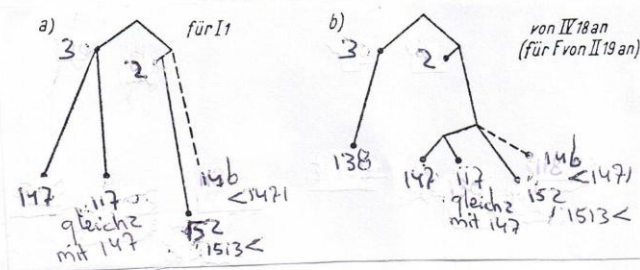 a)
für I1
3
2
147
117
gleich2
mit 147
146
<1471
152
1513<
b)
von IV 18 an
(für F von II 19 an)
3
2
138
147
117
gleich2
mit 147
146
<1471
152
1513<